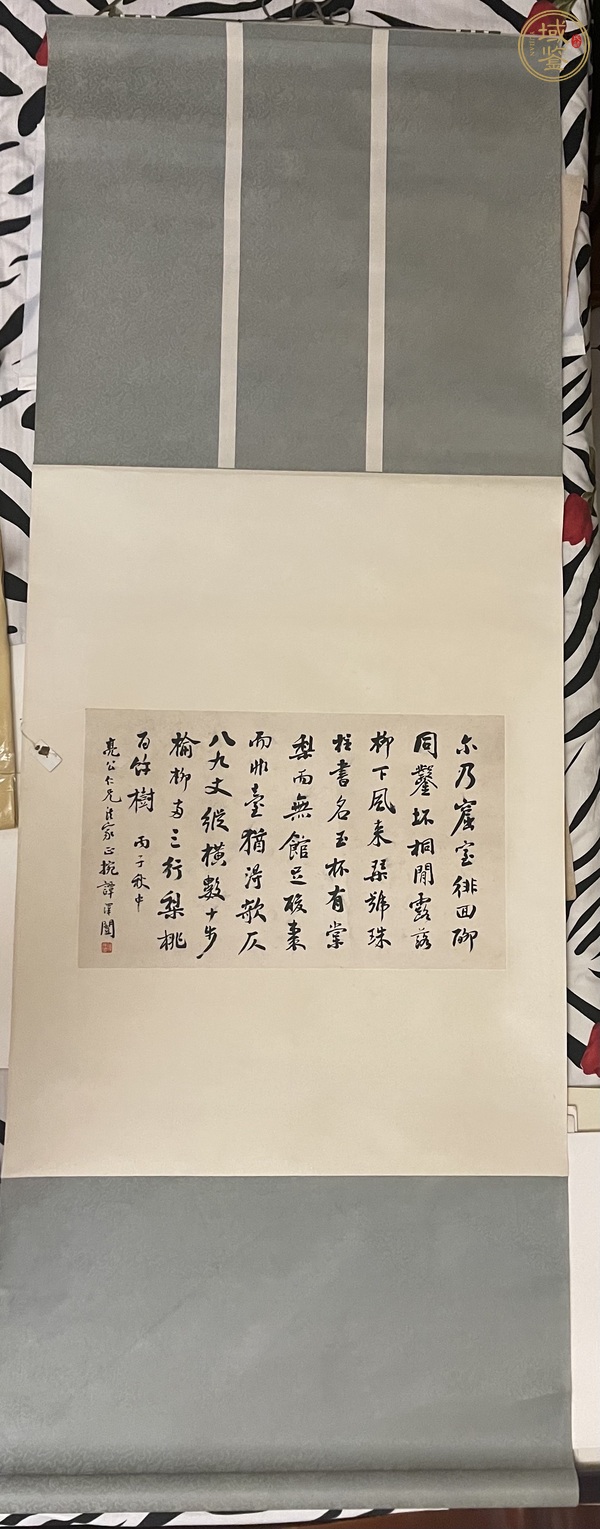 域鉴
尒乃窟室徘回聊
同鑿坏桐間露落
柳下風来琹號珠
柱書名玉杯有棠
梨而無館足酸棗
而非臺猶得欹仄
八九丈縱橫數十步
榆柳兩三行梨桃
百餘樹 丙子秋中
亮公仁兄法家正捥 譚澤闓